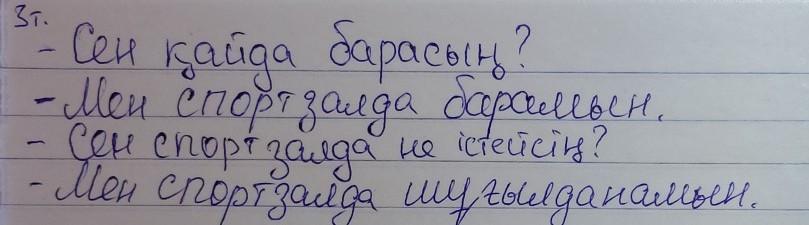 3т.
- Сен қайда барасың?
- Мен спортзалда барамын.
- Сен спортзалда не істейсің?
- Мен спортзалда шұғылданамын.